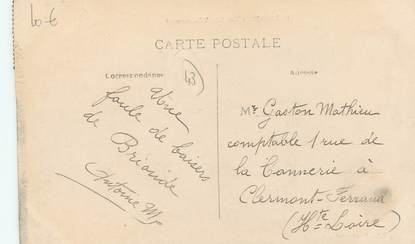 10 €
CARTE POSTALE
Correspondance
Adresse
43
foule de baisers
de Brioude
Antoine M
Mr Gaston Mathieu
comptable 1 rue de
la Tannerie à
Clermont-Ferrand
(Hte Loire)